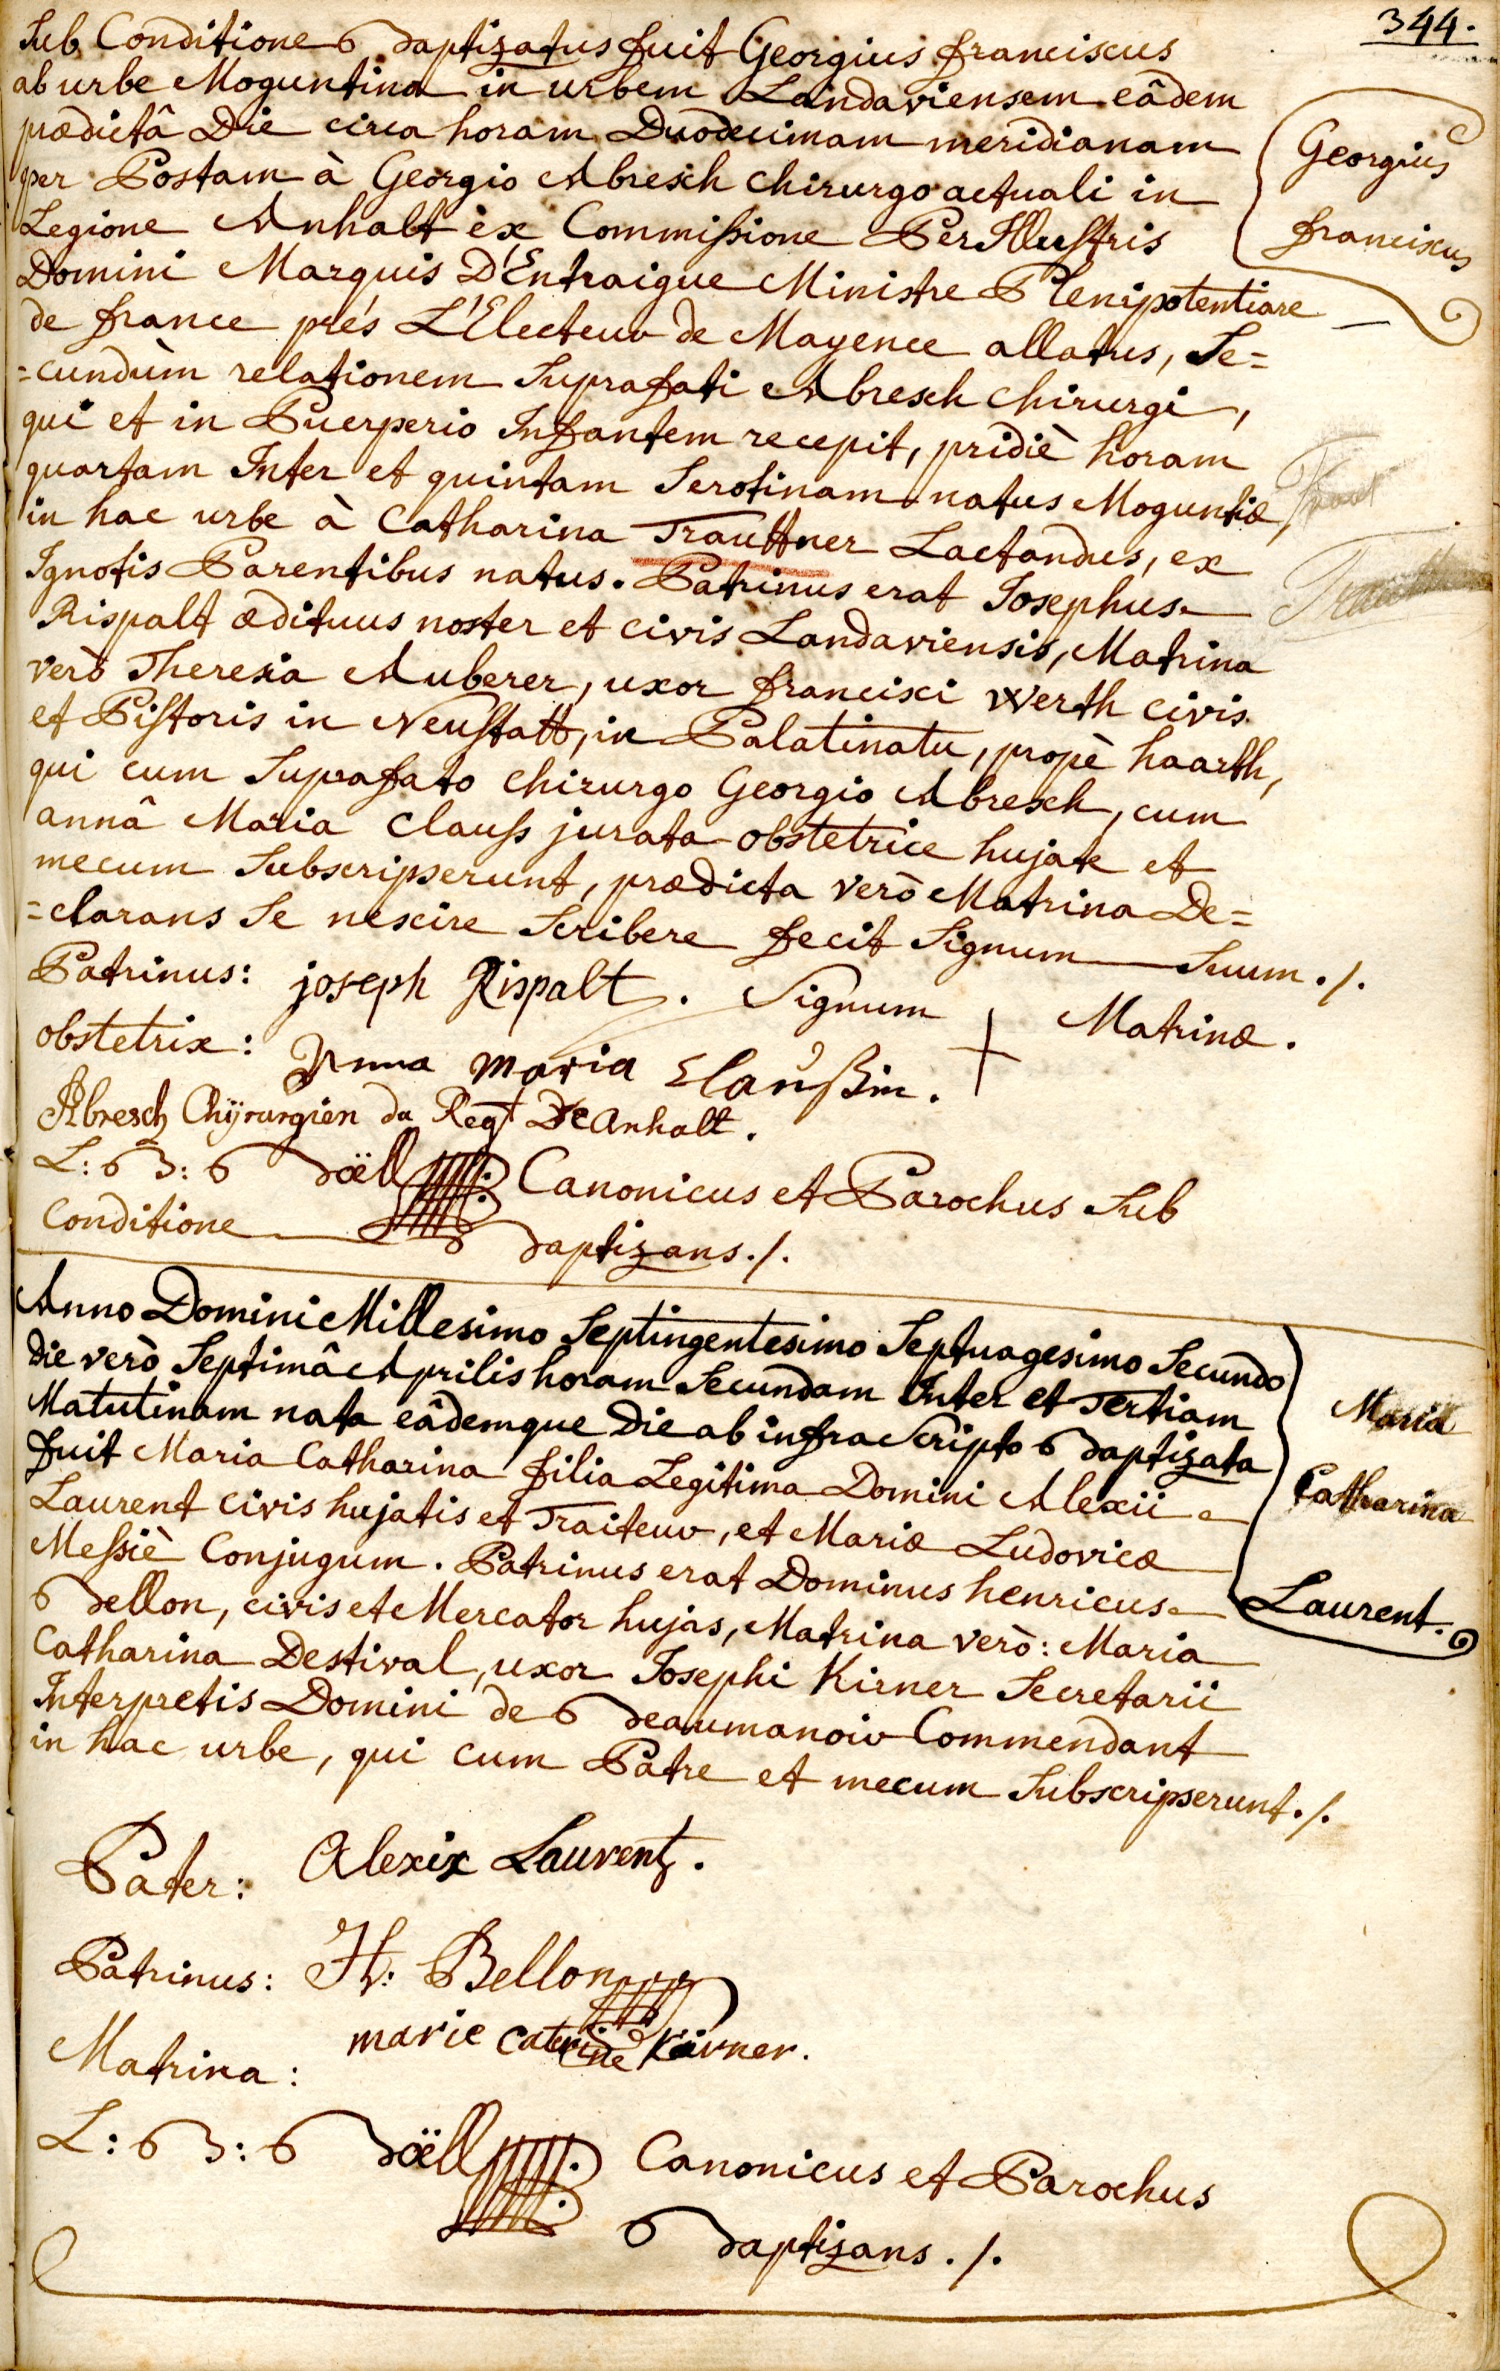 344.
Sub Conditione Baptizatus fuit Georgius franciscus
ab urbe Moguntina in urbem Landaviensem eâdem
prædictâ Die circa horam Duodecimam meridianam
per Postam à Georgio Abresch chirurgo actuali in
Legione Anhalt ex Commissione PerIllustris
Domini Marquis D'Entraigue Ministre Plenipotentiare
de france prés L'Electeur de Mayence allatus, Se=
=cundùm relationem Suprafati Abresch Chirurgi,
qui et in Puerperio Infantem recepit, pridiè horam
quartam Inter et quintam Serotinam natus Moguntiæ,
in hac urbe à Catharina Trauttner Lactandus, ex
Ignotis Parentibus natus. Patrinus erat Josephus
Rispalt ædituus noster et civis Landaviensis, Matrina
verò Theresia Auberer, uxor francisci Werth civis
et Pistoris in Neustatt, in Palatinatu, propè haarth,
qui cum Suprafato Chirurgo Georgio Abresch, cum
annâ Maria Clauss jurata obstetrice hujate et
mecum Subscripserunt, prædicta verò Matrina De=
=clarans Se nescire Scribere fecit Signum Suum ./.
Georgius
franciscus
Patrinus: joseph Rispalt. Signum + Matrinæ.
obstetrix: Anna Maria Claußin.
Abresch Chÿrurgien du Regt De Anhalt.
L: B: Boëll Canonicus et Parochus Sub
Conditione Baptizans ./.
Anno Domini Millesimo Septingentesimo Septuagesimo Secundo
die verò Septimâ Aprilis horam Secundam Inter et Tertiam
Matutinam nata eâdemque Die ab infra Scripto Baptizata
fuit Maria Catharina filia Legitima Domini Alexii
Laurent civis hujatis et Traiteur, et Mariæ Ludovicæ
Messiè Conjugum. Patrinus erat Dominus henricus
Bellon, civis et Mercator hujas, Matrina verò: Maria
Catharina Destival, uxor Josephi Kirner Secretarii
Interpretis Domini de Beaumanoir Commendant
in hac urbe, qui cum Patre et mecum Subscripserunt ./.
Maria
Catharina
Laurent.
Pater: Alexix Laurent.
Patrinus: H: Bellon
Matrina: marie caterine Kirner.
L: B: Boëll Canonicus et Parochus
Baptizans ./.